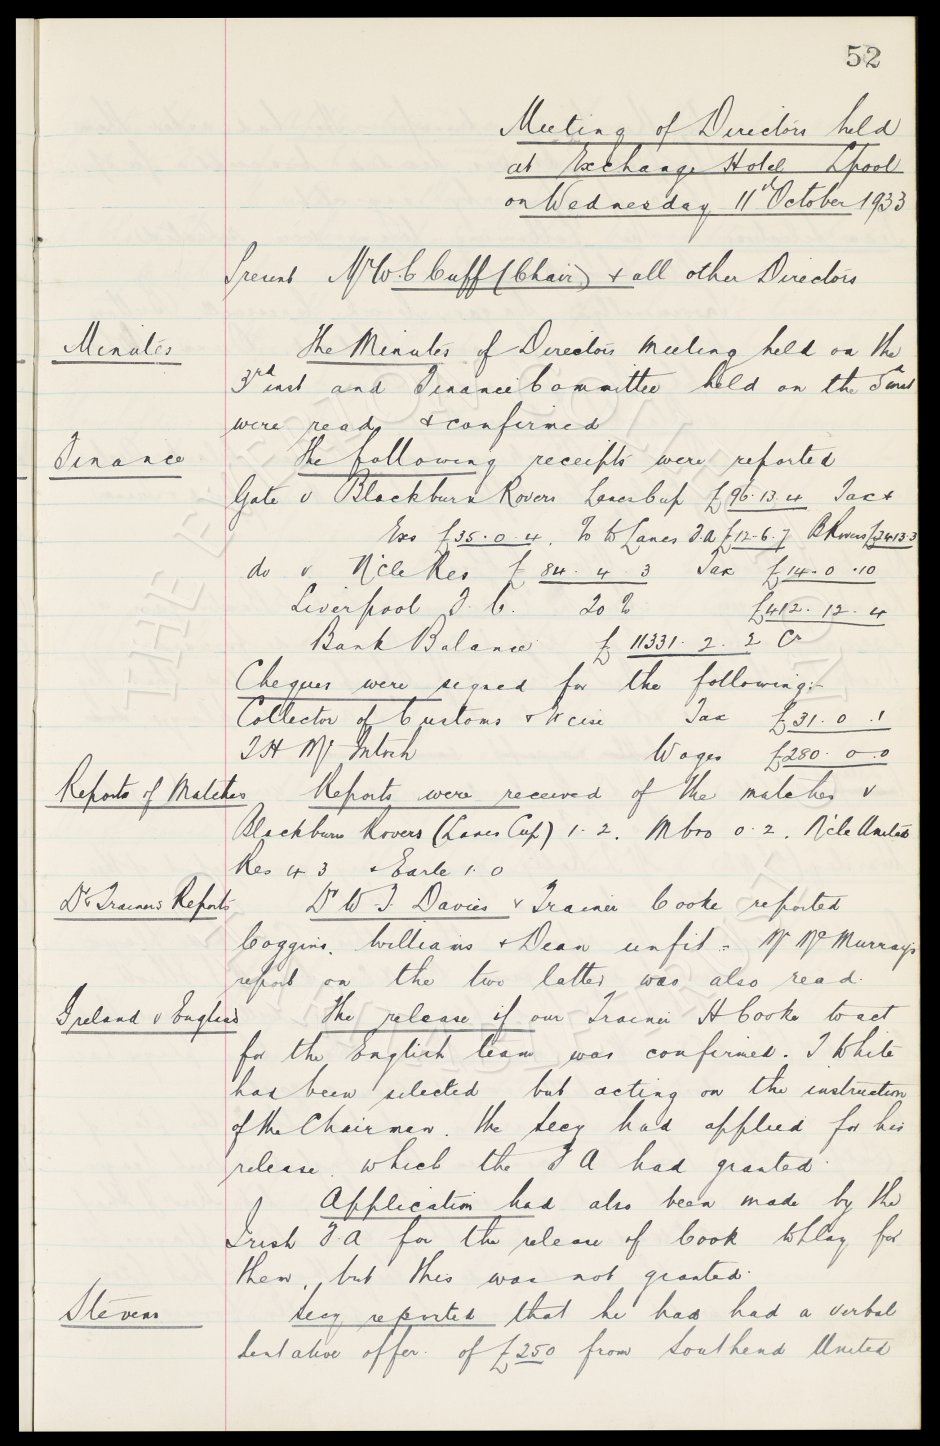 52
Meeting of Directors held
at Exchange Hotel Lpool
on Wednesday 11th October 1933
Present Mr W. C Cuff (Chair) & all other Directors
Minutes The Minutes of Directors Meeting held on the
3rd inst and Finance Committee held on the inst
were read & confirmed
Finance The following receipts were reported
Gate v Blackburn Rovers Lancs Cup £96.13.4 Tax &
Exs £35.0.4. % to Lancs F.A £12.6.7 B Rovers £24.13.3
do v N'cle Res £84.4.3 Tax £14.0.10
Liverpool F.C. 20% £412.12.4
Bank Balance £11331.2.2 Cr
Cheques were signed for the following:-
Collector of Customs & Xcise Tax £31.0.1
T H Mc Intosh Wages £280.0.0
Reports of Matches Reports were received of the matches v
Blackburn Rovers (Lancs Cup) 1-2. Mbro 0-2. N'cle United
Res 4 3 & Earle 1.0
Dr & Trainers Reports Dr W. J. Davies & Trainer Cooke reported
Coggins, Williams & Dean unfit - Mr McMurray's
report on the two latter was also read.
Ireland v England The release of our Trainer H Cooke to act
for the English team was confirmed. T White
had been selected but acting on the instruction
of the Chairman. the Secy had applied for his
release. which the F A had granted.
Application had also been made by the
Irish F.A for the release of Cook to play for
them, but this was not granted.
Stevens Secy reported that he has had a verbal
tentative offer of £250 from Southend United